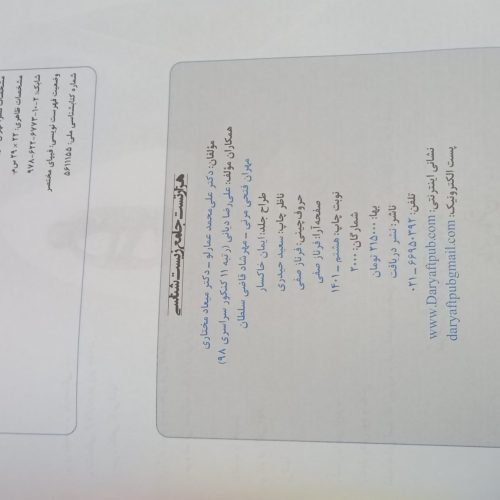 مشخصات نشر: تهران
مشخصات ظاهری: ۲۲ × ۲۹ س‌م.
شابک: ۲-۱۰-۶۷۷۳-۶۲۲-۹۷۸
وضعیت فهرست نویسی: فیپای مختصر
شماره کتابشناسی ملی: ۵۶۱۱۱۵۵
هزارتست جامع زیست‌شناسی
مؤلفان: دکتر علی‌محمد عمارلو _ دکتر میعاد مختاری
همکاران مؤلف: علی‌رضا دیانی (رتبه ۱۱ کنکور سراسری ۹۸)
مهران فتحی مرنی _ مهرشاد قاضی سلطان
طراح جلد: ایمان خاکسار
ناظر چاپ: سعید حیدری
حروف‌چینی: فرناز صفی
صفحه‌آرا: فرناز صفی
نوبت چاپ: هشتم _ ۱۴۰۱
شمارگان: ۲۰۰۰
بها: ۲۱۵۰۰۰ تومان
ناشر: نشر دریافت
تلفن: ۶۶۹۵۰۳۹۲ _ ۰۲۱
نشانی اینترنتی: www.Daryaftpub.com
پست الکترونیک: daryaftpubgmail.com